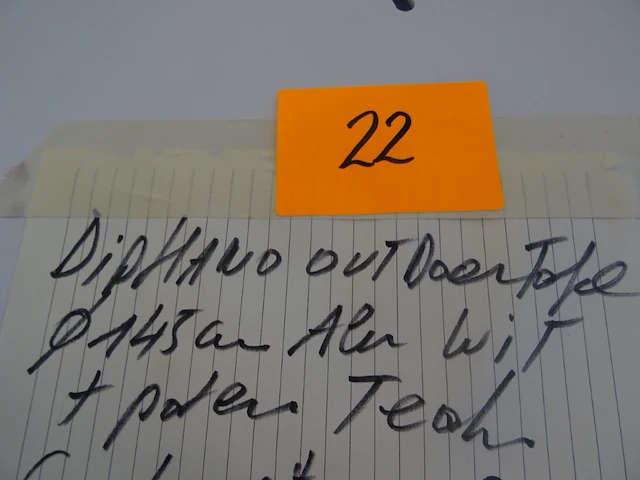 22
DipHANO OUTDoor Tafel
Ø 145 cm Alu Wit
+ poten Teak